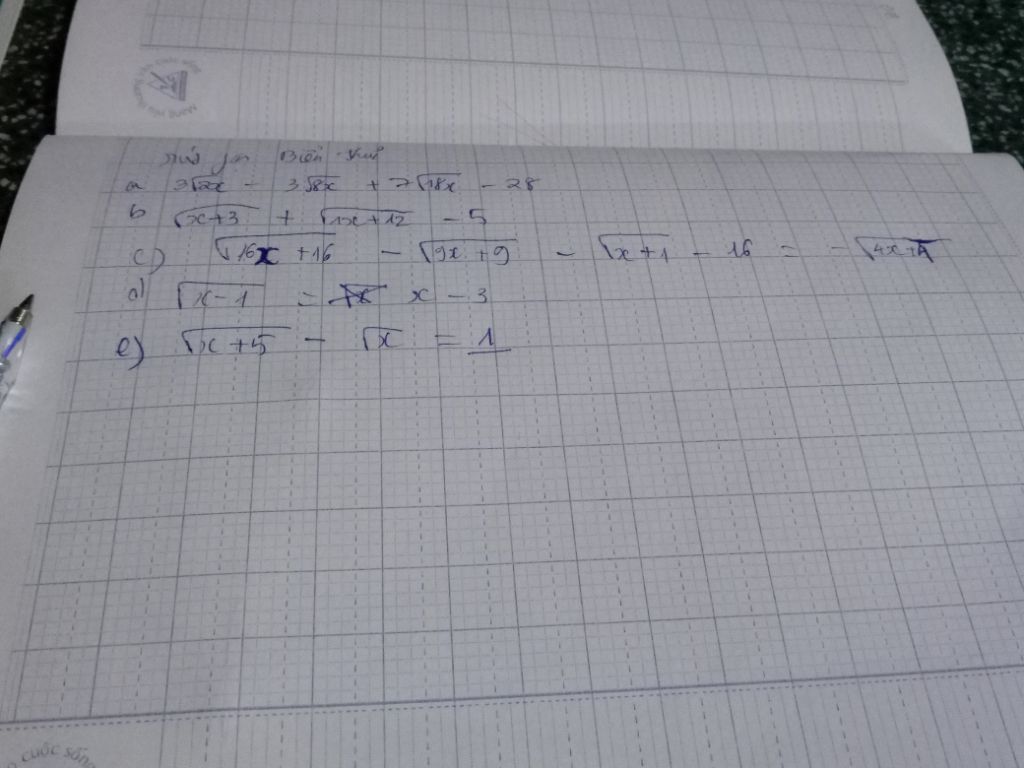 Rút gọn Biến thức
a 2√2x - 3√8x + 7√18x - 28
b √x+3 + √4x+12 - 5
c) √16x+16 - √9x+9 - √x+1 - 16 = -√4x+4
d) √x-1 = x - 3
e) √x+5 - √x = 1
cuộc sống